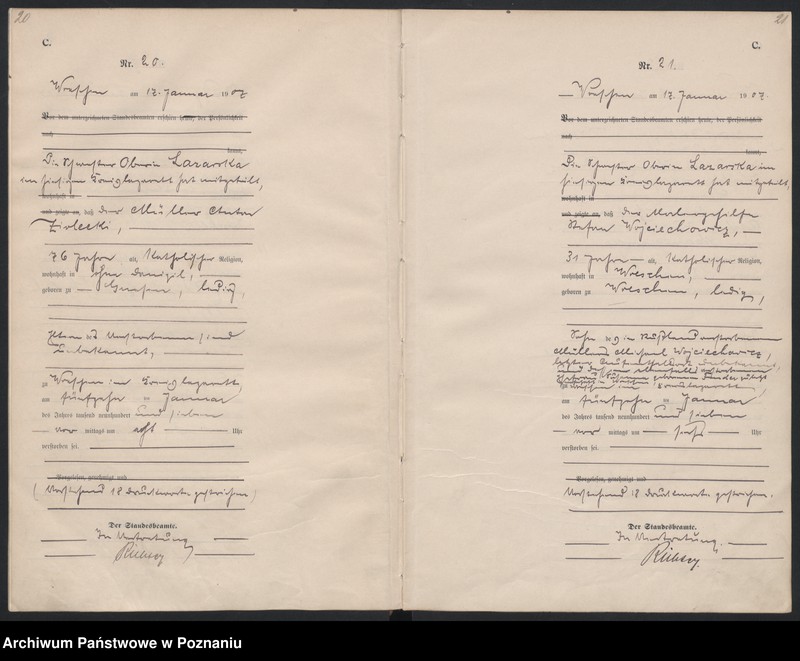 20
C.
Nr. 20.
Wreschen am 17. Januar 1907
Vor dem unterzeichneten Standesbeamten erschien heute, der Persönlichkeit
nach
kannt,
Die Schwester Oberin Lazarska
im hiesigen Kreislazarett hat mitgeteilt,
wohnhaft in
und zeigte an, daß der Müller Anton
Ziolecki,
76 Jahre alt, katholischer Religion,
wohnhaft in ohne Domizil,
geboren zu Gnesen, ledig,
Eltern des Verstorbenen sind
unbekannt,
zu Wreschen im Kreislazarett,
am fünfzehn ten Januar
des Jahres tausend neunhundert und sieben
vor mittags um acht Uhr
verstorben sei.
Vorgelesen, genehmigt und
(Vorstehend 18 Druckworte gestrichen)
Der Standesbeamte.
In Vertretung
21
C.
Nr. 21.
Wreschen am 17. Januar 1907.
Vor dem unterzeichneten Standesbeamten erschien heute, der Persönlichkeit
nach
kannt,
Die Schwester Oberin Lazarska im
hiesigen Kreislazarett hat mitgeteilt,
wohnhaft in
und zeigte an, daß der Malergehilfe
Stefan Wojciechowicz,
31 Jahre alt, katholischer Religion,
wohnhaft in Wreschen,
geboren zu Wreschen, ledig,
Sohn des in Rußland verstorbenen
Müllers Michael Wojciechowicz,
Wreschen im Kreislazarett,
am fünfzehn ten Januar
des Jahres tausend neunhundert und sieben
vor mittags um sechs Uhr
verstorben sei.
Vorgelesen, genehmigt und
Vorstehend 18 Druckworte gestrichen.
Der Standesbeamte.
In Vertretung.
Archiwum Państwowe w Poznaniu